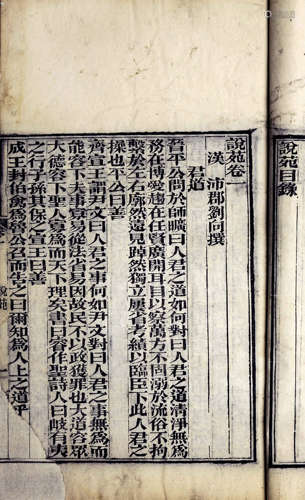 說苑目錄
說苑卷一
漢 沛郡劉向撰
君道
晉平公問於師曠曰人君之道如何對曰人君之道清淨無為
務在博愛趨在任賢廣開耳目以察萬方不固溺於流俗不拘
繫於左右廓然遠見踔然獨立屢省考績以臨臣下此人君之
操也平公曰善
齊宣王謂尹文曰人君之事何如尹文對曰人君之事無為而
能容下夫事寡易從法省易因故民不以政獲罪也大道容眾
大德容下聖人寡為而天下理矣書曰睿作聖詩人曰岐有夷
之行子孫其保之宣王曰善
成王封伯禽為魯公召而告之曰爾知為人上之道乎
說苑